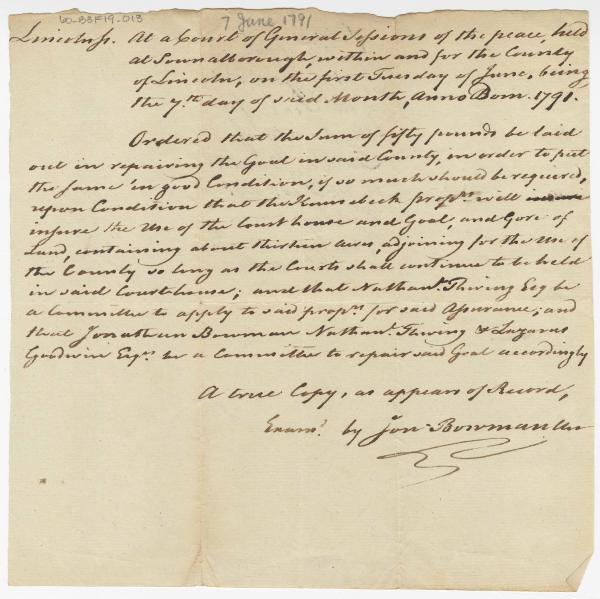 60-B3F19-013
7 June 1791
Lincoln ss. At a Court of General Sessions of the peace, held
at Pownalborough, within and for the County
of Lincoln, on the first Tuesday of June, being
the 7.th day of said Month, Anno Dom. 1791.
Ordered that the Sum of fifty pounds be laid
out in repairing the Goal in said County, in order to put
the same in good Condition, if so much should be required,
upon Condition that the Kennebeck prop.rs will
insure the Use of the Court house and Goal, and Gore of
Land, containing about thirteen Acres, adjoining for the Use of
the County so long as the Courts shall continue to be held
in said Courthouse; and that Nathan.l Thwing Esq be
a Committee to apply to said prop.rs for said Assurance; and
that Jonathan Bowman Nathan.l Thwing & Lazarus
Goodwin Esq.rs be a Committee to repair said Goal accordingly
A true Copy, as appears of Record,
Exam.d by Jon Bowman